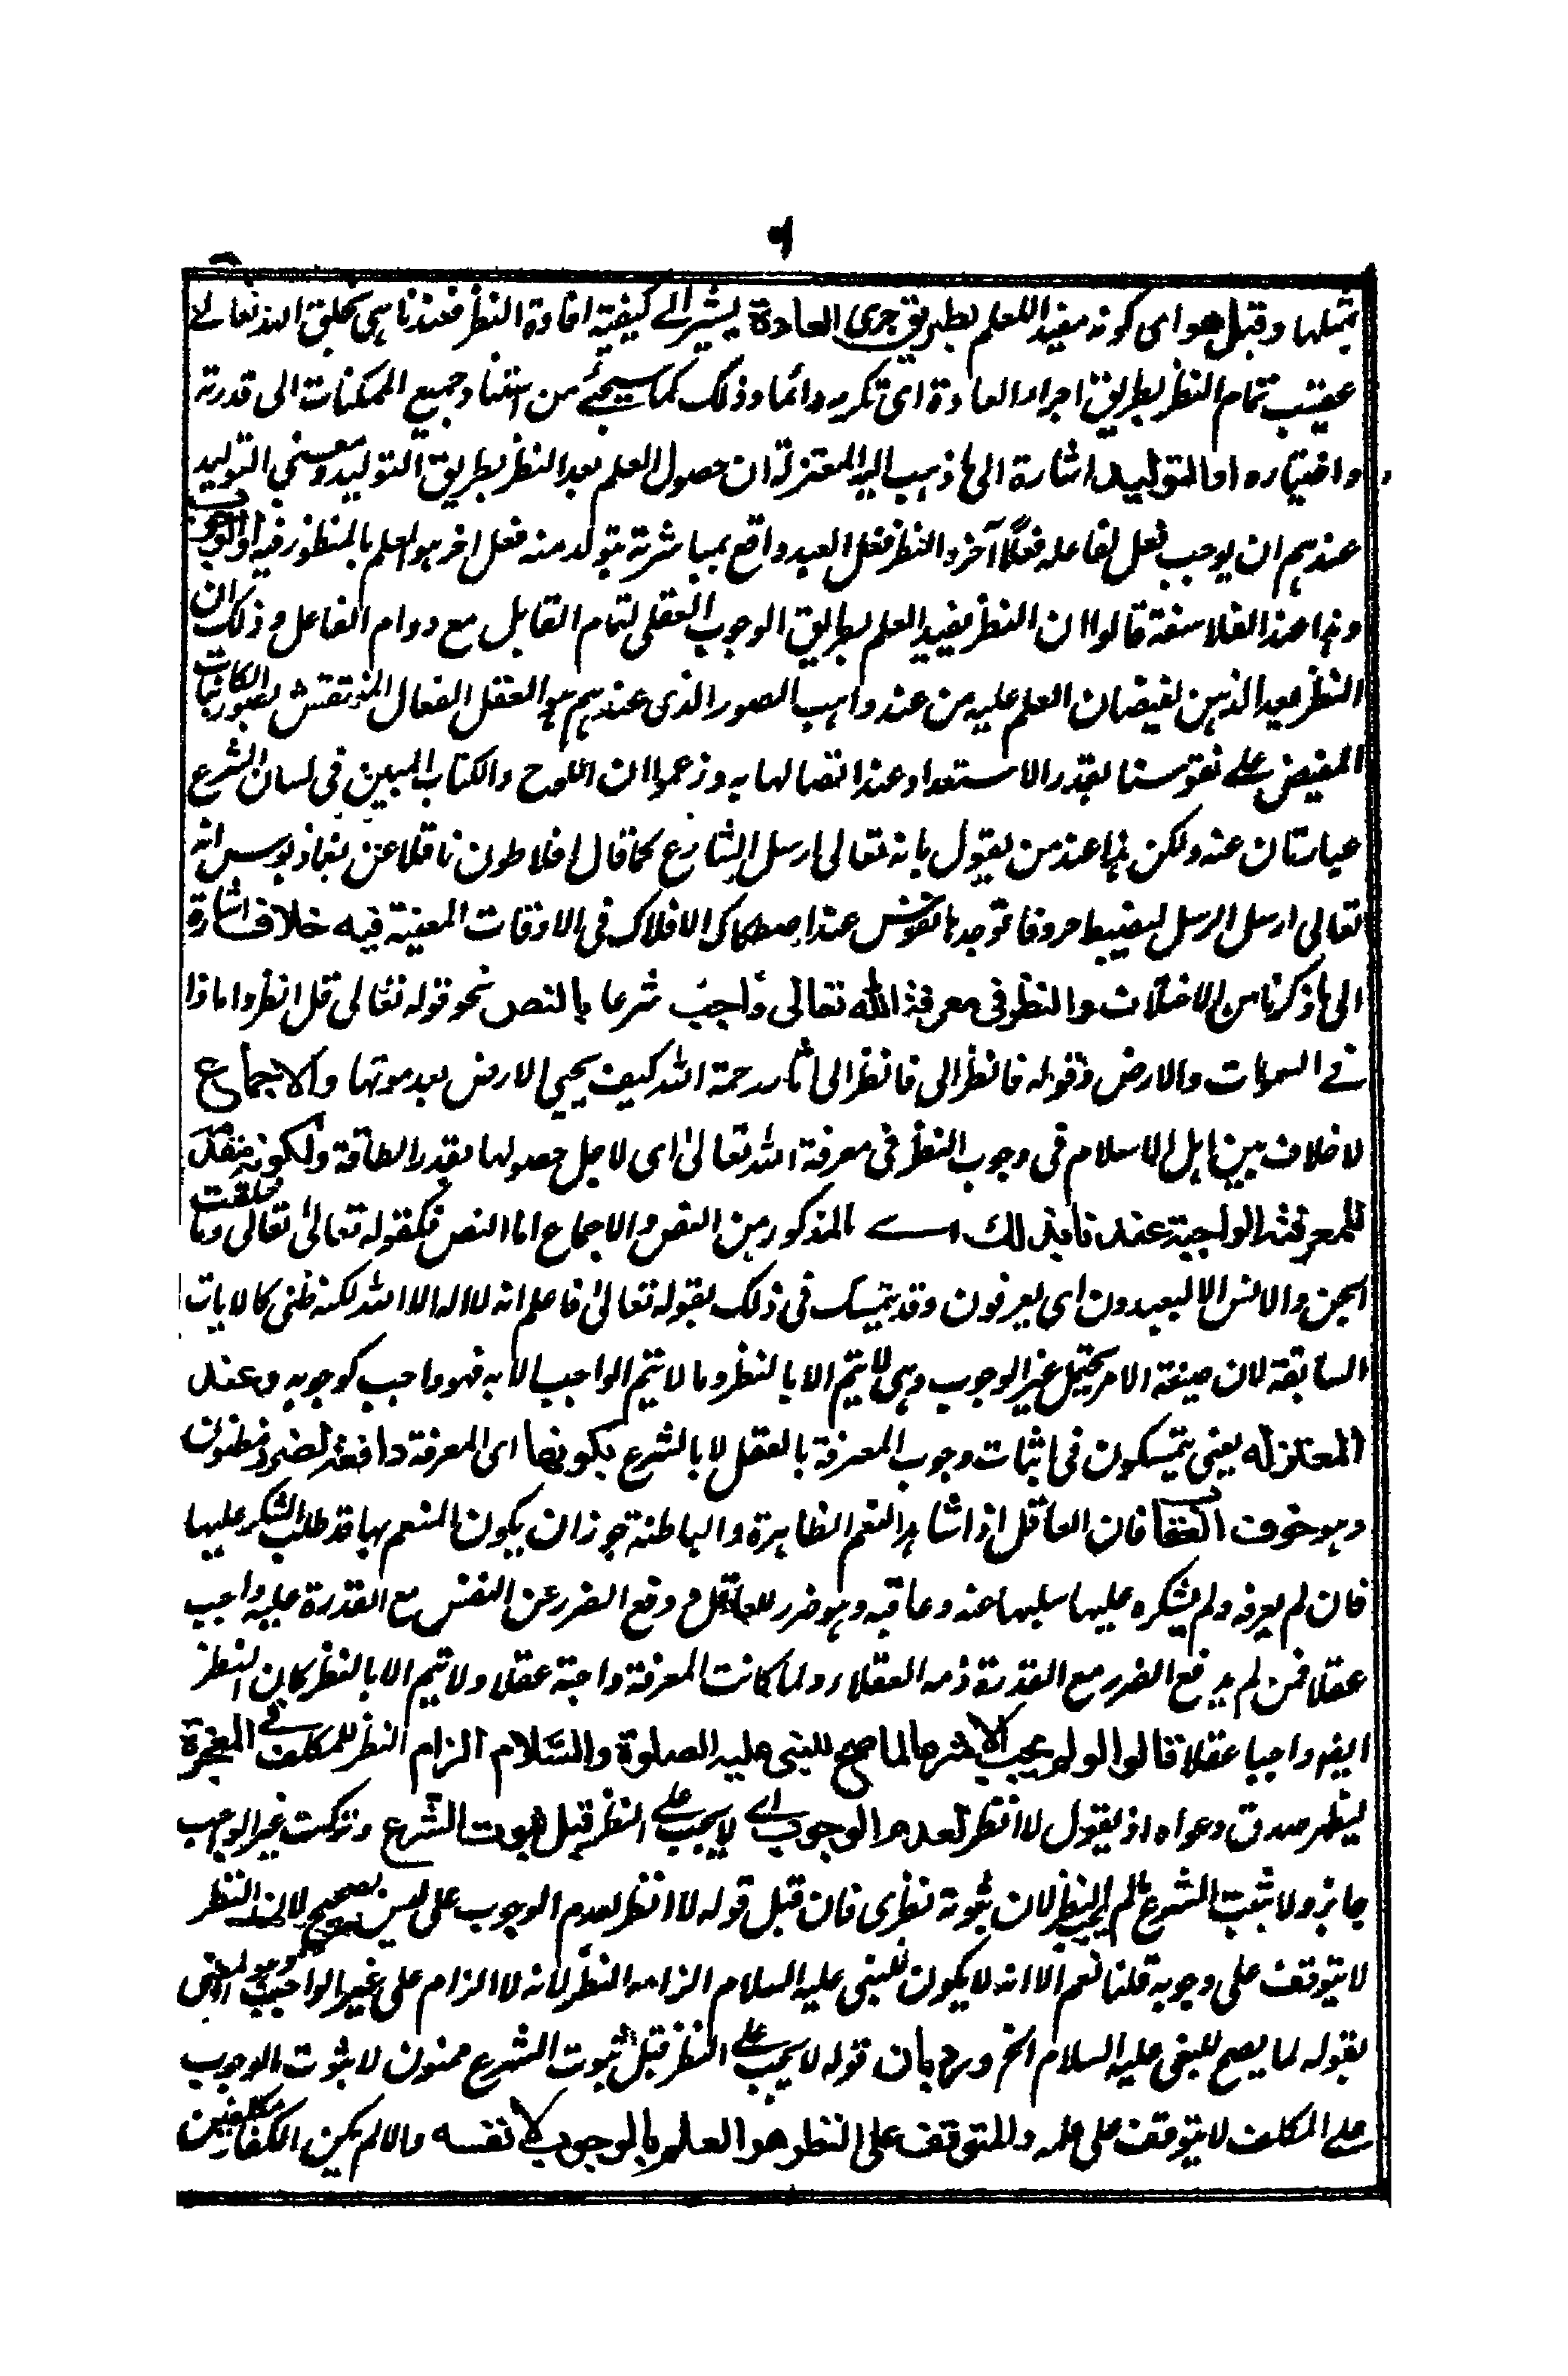 ٩
بمثلها وقيل هو اى كونه مفيدا للعلم بطريق جرى العادة يشير الى كيفية افادة النظر فعندنا هى بخلق الله تعالى
عقيب تمام النظر بطريق اجراء العادة اى تكريره دائما وذلك كما سيجئ من استناد جميع الممكنات الى قدرته
واختياره او التوليد اشارة الى ما ذهب اليه المعتزلة ان حصول العلم بعد النظر بطريق التوليد ومعنى التوليد
عندهم ان يوجب فعل لفاعله فعلا آخر والنظر فعل العبد واقع بمباشرته يتولد منه فعل اخر هو العلم بالمنظور فيه او الوجوب
وهذا عند الفلاسفة قالوا ان النظر يفيد العلم بطريق الوجوب العقلى لتمام القابل مع دوام الفاعل وذلك ان
النظر يعد الذهن لفيضان العلم عليه من عند واهب الصور الذى عندهم هو العقل الفعال المنتقش بصور الكائنات
المفيض على نفوسنا بقدر الاستعداد عند اتصالها به وزعموا ان اللوح والكتاب المبين فى لسان الشرع
عبارتان عنه ولكن هذا عند من يقول بانه تعالى ارسل الشارع كما قال افلاطون ناقلا عن انه
تعالى ارسل الرسل ليضبط حروفا توجد بالنفوس عند اصطكاك الافلاك فى الاوقات المعينة فيه خلاف اشارة
الى ما ذكرنا من الاختلاف والنظر فى معرفة الله تعالى واجب شرعا بالنص نحو قوله تعالى قل انظروا ماذا
فى السموات والارض وقوله فانظر الى فانظر الى اثار رحمة الله كيف يحيى الارض بعد موتها والاجماع
لا خلاف بين اهل الاسلام فى وجوب النظر فى معرفة الله تعالى اى لاجل حصولها بقدر الطاقة ولكونه مقدمة
للمعرفة الواجبة عندنا بذلك اے المذكور من النص والاجماع اما النص فكقوله تعالى تعالى وما خلقت
الجن والانس الا ليعبدون اى يعرفون وقد يتمسك فى ذلك بقوله تعالى فاعلم انه لا اله الا الله لكنه ظنى كالايات
السابقة لان صيغة الامر يحتمل غير الوجوب وهى لا يتم الا بالنظر وما لا يتم الواجب الا به فهو واجب كوجوبه وعند
المعتزلة يعنى يتمسكون فى اثبات وجوب المعرفة بالعقل لا بالشرع بكونها اى المعرفة دافعة لضرر مظنون
وهو خوف العقاب فان العاقل اذا شاهد النعم الظاهرة والباطنة جوز ان يكون المنعم بها قد طلب الشكر عليها
فان لم يعرفه ولم يشكره عليها سلبها عنه وعاقبه وهو ضرر للعاقل ودفع الضرر عن النفس مع القدرة عليه واجب
عقلا فمن لم يدفع الضرر مع القدرة ذمه العقلاء ولما كانت المعرفة واجبة عقلا ولا يتم الا بالنظر كان النظر
ايضا واجبا عقلا قالوا لو لم يجب الا شرعا لما صح للنبى عليه الصلوة والسلام الزام النظر للمكلف فى المعجزة
ليظهر صدق دعواه اذ يقول لا انظر لعدم الوجوب اے لا يجب على النظر قبل ثبوت الشرع وتركت غير الواجب
جائز ولا يثبت الشرع ما لم يجب النظر لان ثبوته نظرى فان قيل قوله لا انظر لعدم الوجوب على ليس بصحيح لان النظر
لا يتوقف على وجوبه قلنا نعم الا انه لا يكون للنبى عليه السلام الزامه النظر لانه لا الزام على غير الواجب وهو المعنى
بقوله لما يصح للنبى عليه السلام الخ ورد بان قوله لا يجب على النظر قبل ثبوت الشرع ممنوع لا ثبوت الوجوب
على المكلف لا يتوقف على علمه والمتوقف على النظر هو العلم بالوجوب لا نفسه والا لم يكن الكفار مكلفين